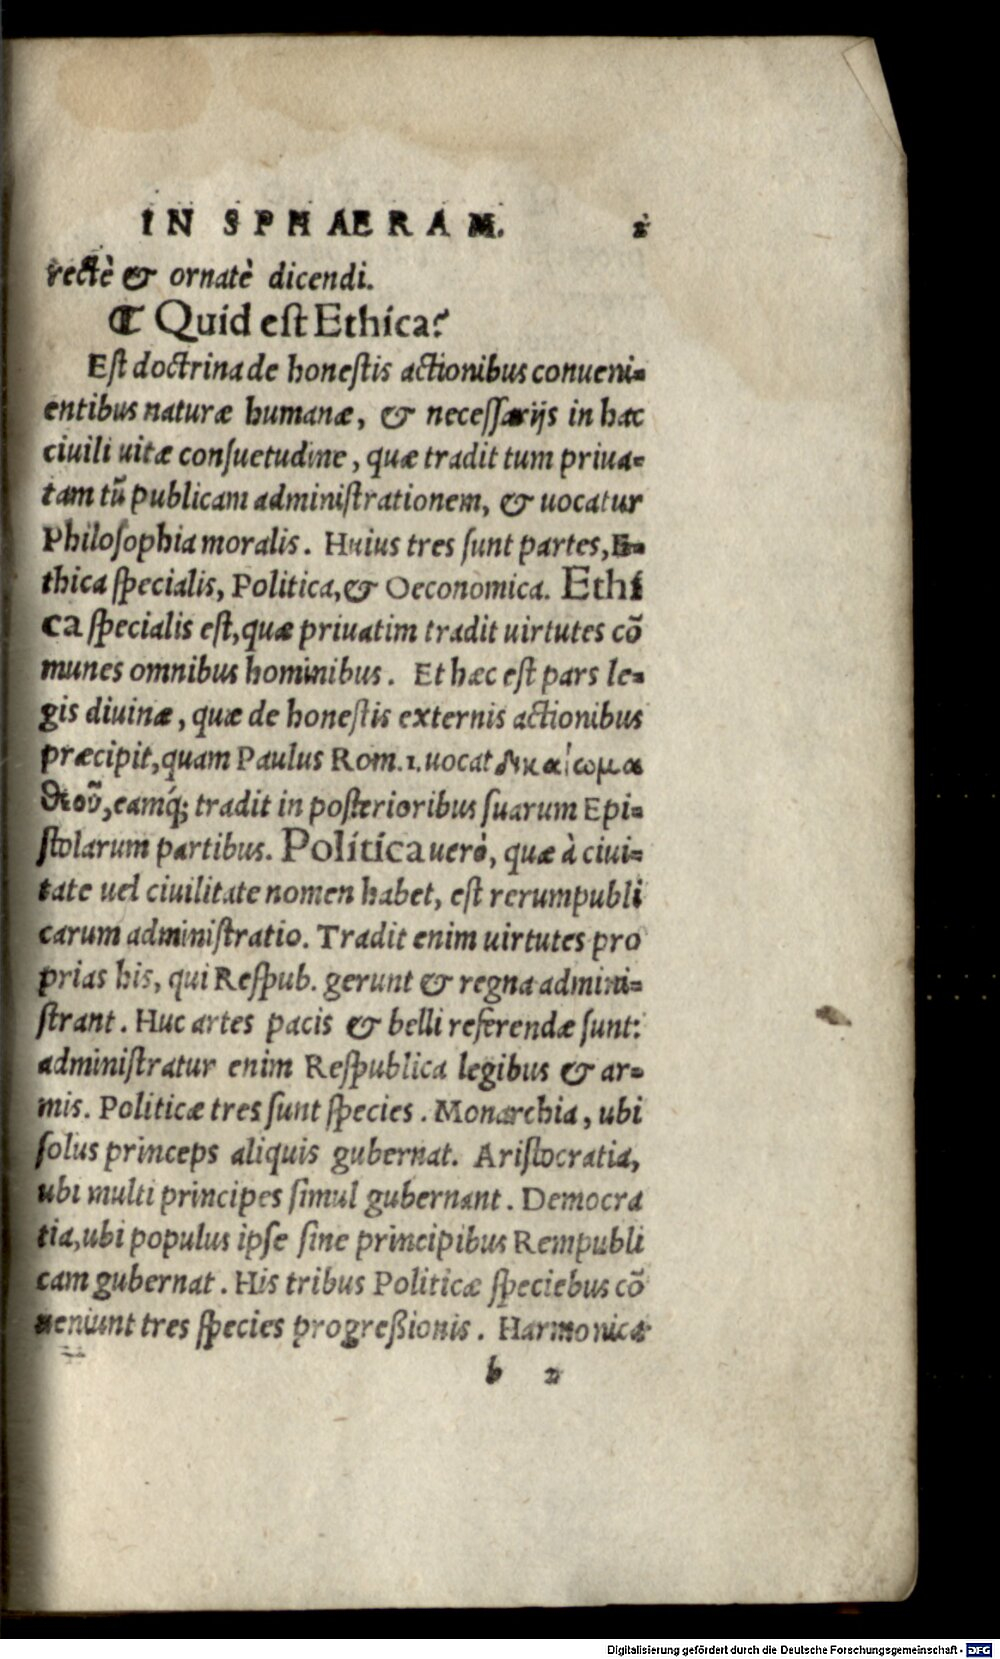 IN SPHAERAM. 2
rectè & ornatè dicendi.
¶ Quid est Ethica?
Est doctrina de honestis actionibus conueni-
entibus naturæ humanæ, & necessarijs in hac
ciuili uitæ consuetudine, quæ tradit tum priua-
tam tũ publicam administrationem, & uocatur
Philosophia moralis. Huius tres sunt partes, E-
thica specialis, Politica, & Oeconomica. Ethi
ca specialis est, quæ priuatim tradit uirtutes cõ
munes omnibus hominibus. Et hæc est pars le-
gis diuinæ, quæ de honestis externis actionibus
præcipit, quam Paulus Rom. 1. uocat δικαίωμα
θεοῦ, eamq́; tradit in posterioribus suarum Epi-
stolarum partibus. Politica uerò, quæ à ciui-
tate uel ciuilitate nomen habet, est rerumpubli
carum administratio. Tradit enim uirtutes pro
prias his, qui Respub. gerunt & regna admini-
strant. Huc artes pacis & belli referendæ sunt:
administratur enim Respublica legibus & ar-
mis. Politicæ tres sunt species. Monarchia, ubi
solus princeps aliquis gubernat. Aristocratia,
ubi multi principes simul gubernant. Democra
tia, ubi populus ipse sine principibus Rempubli
cam gubernat. His tribus Politicæ speciebus cõ
ueniunt tres species progreßionis. Harmonica
b 2
Digitalisierung gefördert durch die Deutsche Forschungsgemeinschaft - DFG